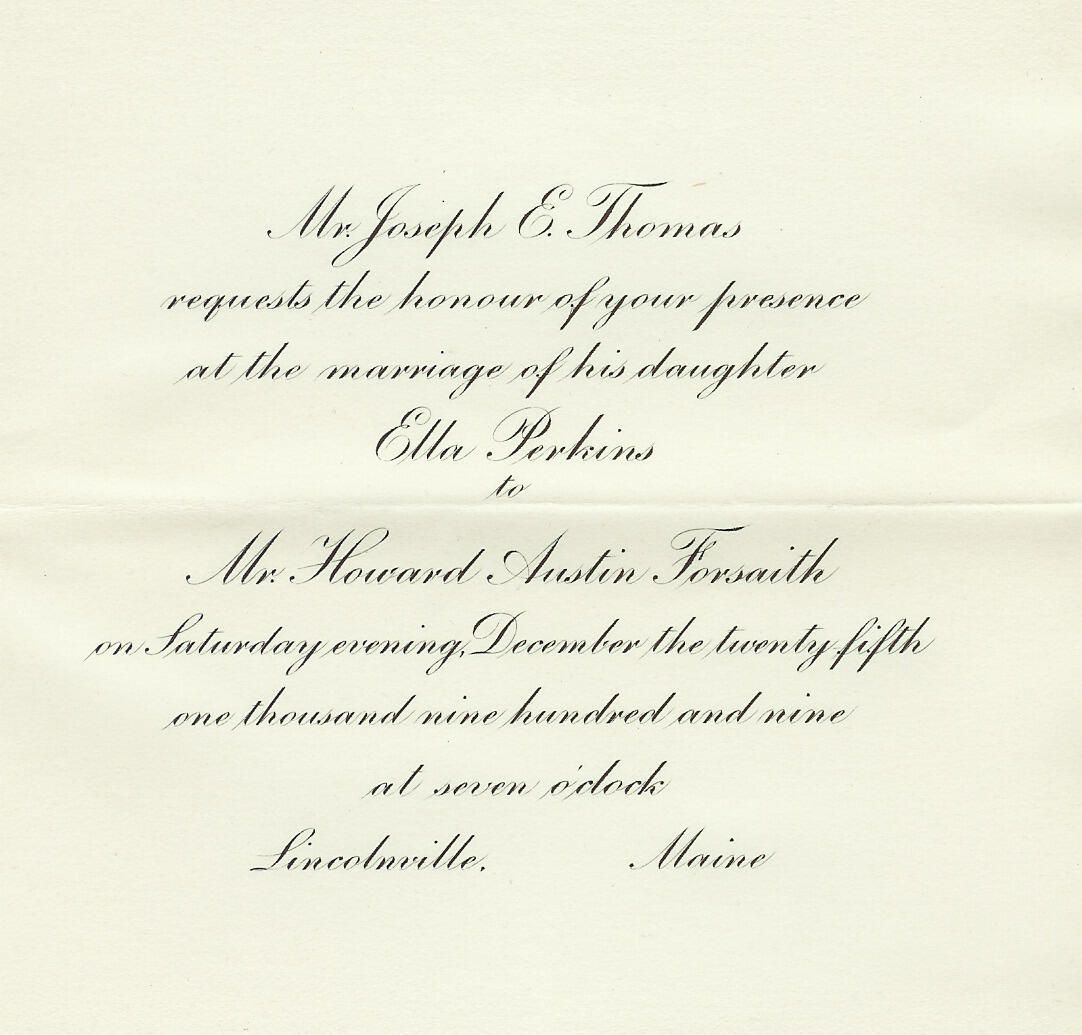 Mr. Joseph E. Thomas
requests the honour of your presence
at the marriage of his daughter
Ella Perkins
to
Mr. Howard Austin Forsaith
on Saturday evening, December the twenty fifth
one thousand nine hundred and nine
at seven o'clock
Lincolnville. Maine